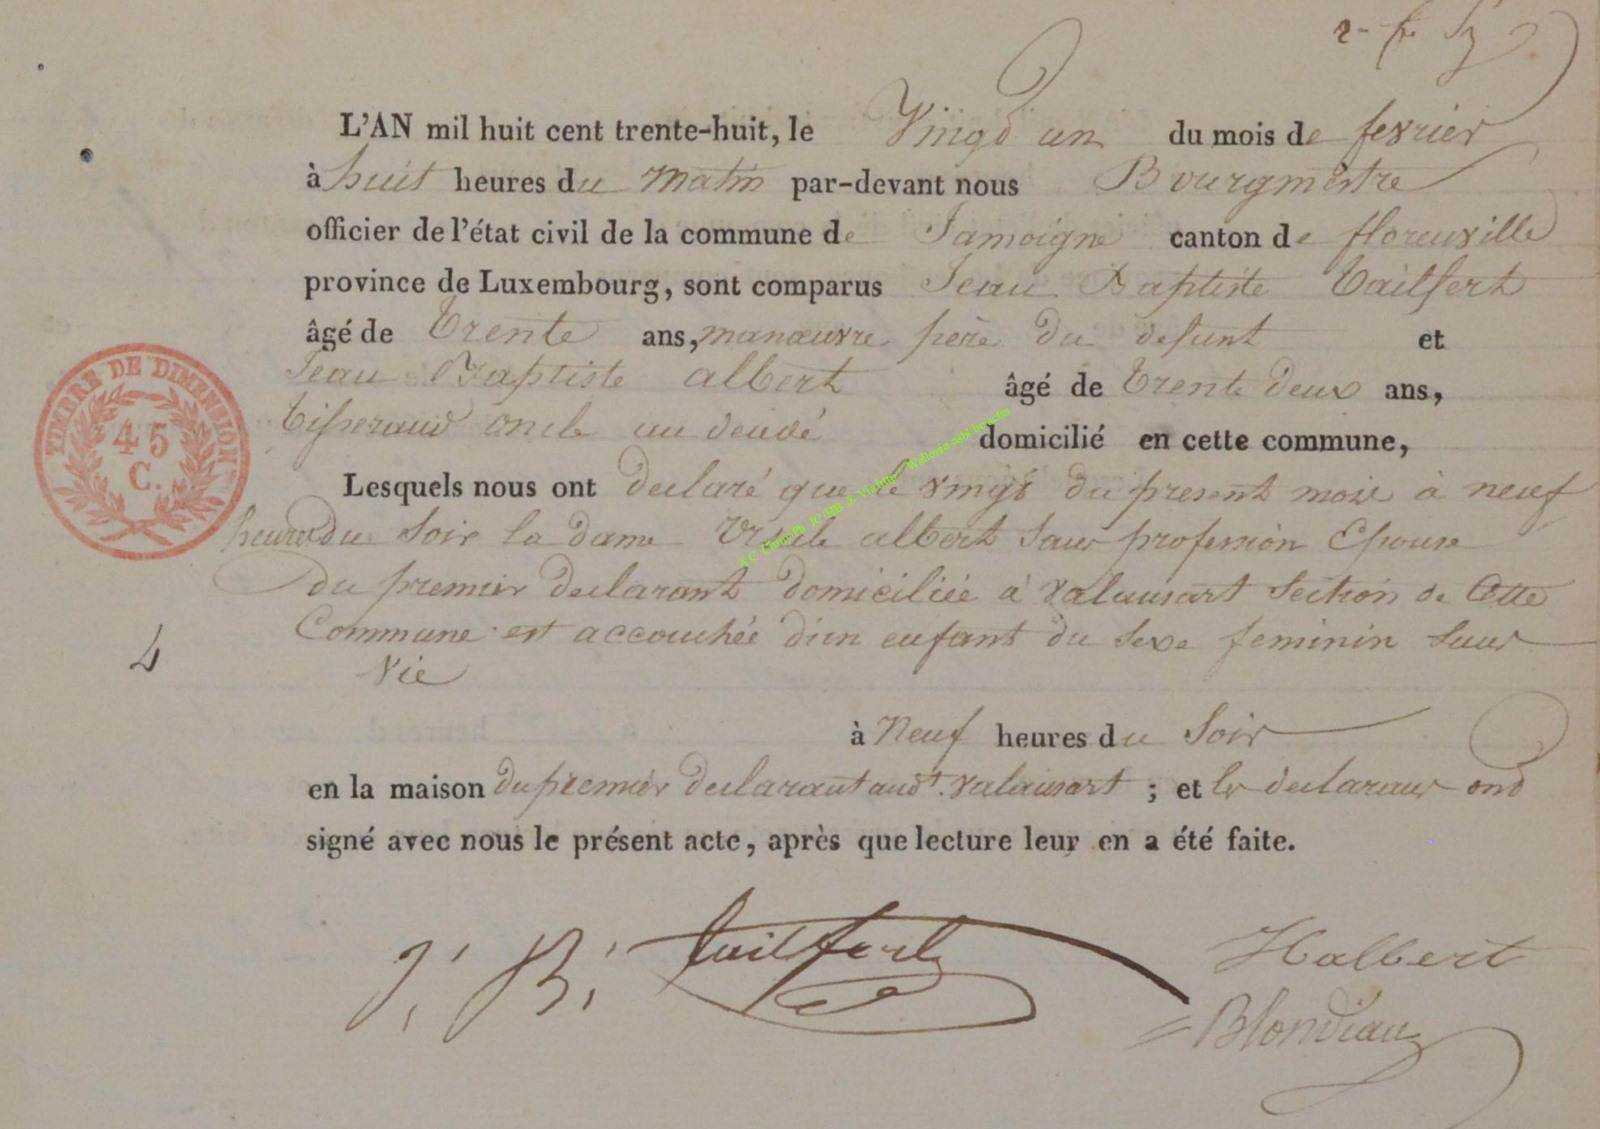 L'AN mil huit cent trente-huit, le Vingt un du mois de fevrier
à huit heures du matin par-devant nous Bourgmestre
officier de l'état civil de la commune de Jamoigne canton de florenville
province de Luxembourg, sont comparus Jean Baptiste tailfert
âgé de trente ans, manœuvre père du defunt et
Jean Baptiste albert âgé de trente deux ans,
tisserand oncle au décédé domicilié en cette commune,
Lesquels nous ont declaré que le vingt du present mois à neuf
heures du soir la dame Ursule albert sans profession Epouse
du premier declarant domiciliée à valansart section de Cette
Commune est accouchée d'un enfant du sexe feminin sans
vie
à Neuf heures du Soir
en la maison du premier declarant aud.t valansart ; et les declarans ont
signé avec nous le présent acte, après que lecture leur en a été faite.
TIMBRE DE DIMENSION
45
C.
4
J. B. tailfert
Halbert
Blondiau